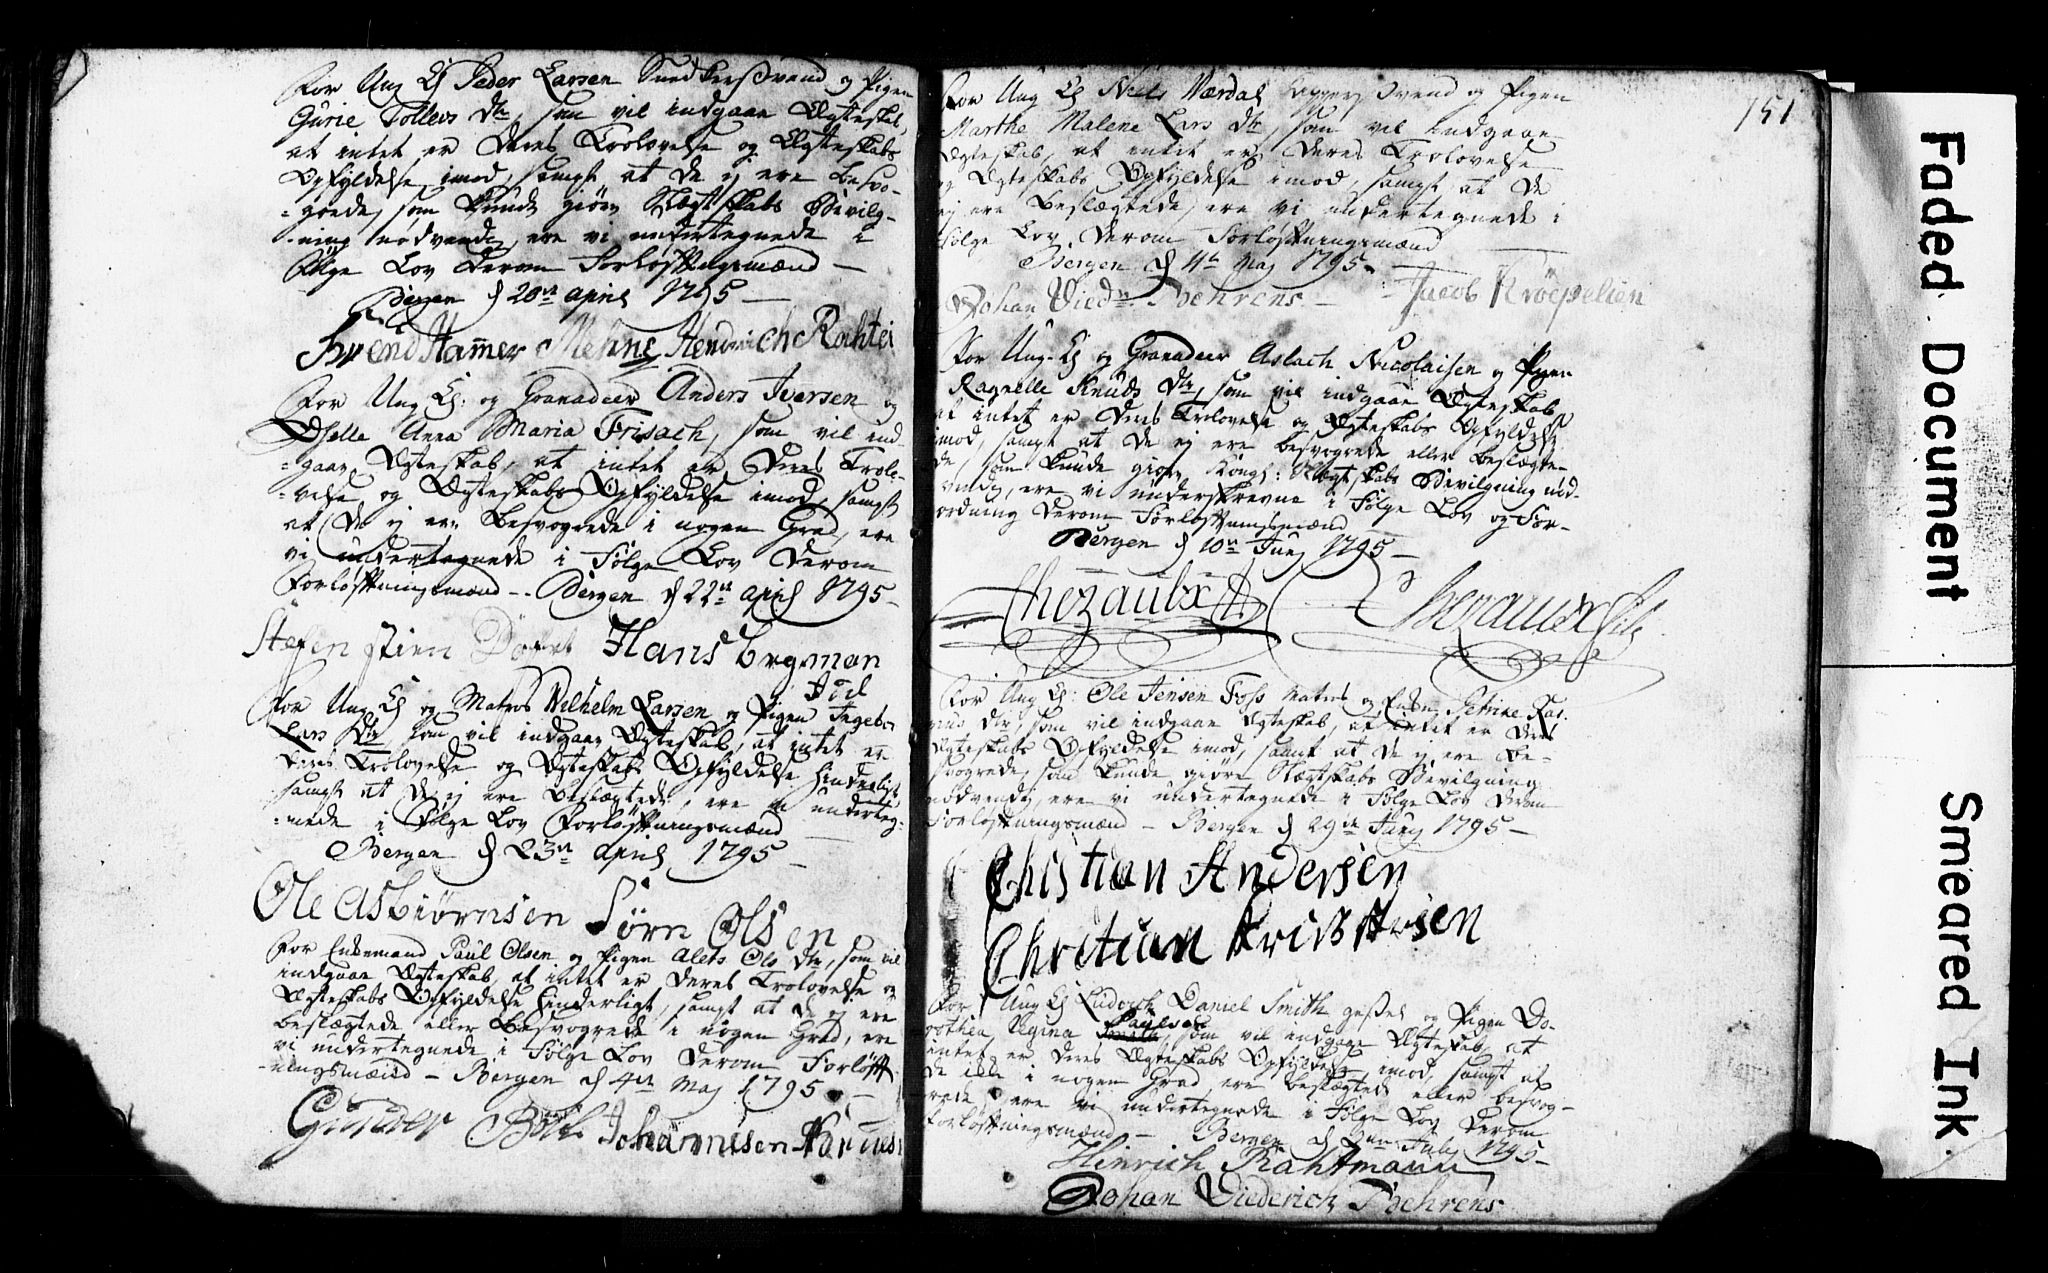 For Ung K Peder Larsen Snedkersvend og Pigen
Gurie Tollevs Dtr, som vil indgaae Ægteskab,
at intet er Deres Trolovelse og Ægteskabs
Opfyldelse imod, samt at De ej ere Besvo-
-grede, som kunde giøre Slægtskabs Bevilg-
-ning nødvendig, ere vi undertegnede i
Følge Lov Derom Forløftningsmænd —
Bergen d 20de April 1795 —
Svend Hamer Mehne Hendrich Rahte
For Ung K: og Granadeer Anders Iversen og
Anna Maria Frisach, som vil ind-
-gaae Ægteskab, at intet er Deres Trolo-
-velse og Ægteskabs Opfyldelse imod, samt
at De ej ere Besvogrede i nogen Grad, ere
vi undertegnede i Følge Lov Derom
Forløftningsmænd -. Bergen d 22de April 1795 —
Stefen Hans Bergman
For Ung K og Matros Welhelm Larsen og Pigen Ingebor
Lars Dtr som vil indgaae Ægteskab, at intet er
Deres Trolovelse og Ægteskabs Opfyldelse hinderligt,
samt at De ej ere Beslægtede, ere vi underteg-
-nede i Følge Lov Forløftningsmænd —
Bergen d 23de April 1795 —
Ole Asbiørnsen Sørn Olsen
For Enkemand Paul Olsen og Pigen Alets Ols Dtr, som vil
indgaae Ægteskab, at intet er Deres Trolovelse og
Ægteskabs Opfyldelse hinderligt, samt at De ej ere
beslægtede eller Besvogrede i nogen Grad, ere
vi undertegnede i Følge Lov Derom Forløft-
-ningsmænd — Bergen d 4de Maj 1795. —
Gunder Johannisen
151
For Ung K Niels Værdal Svend og Pigen
Marthe Malene Lars Dtr, som vil indgaae
Ægteskab, at intet er Deres Trolovelse
og Ægteskabs Opfyldelse imod, samt at De
ej ere Beslægtede, ere vi undertegnede i
Følge Lov Derom Forløftningsmænd —
Bergen d 4de Maj 1795 -
Johan Died Behrens — Jacob Krøepelien
For Ung K og Granadeer Aslach Nicolaisen og Pigen
Ragnelle Knuds Dtr, som vil indgaae Ægteskab,
at intet er Deres Trolovelse og Ægteskabs Opfyldelse
imod, samt at De ej ere besvogrede eller beslægte-
de, som kunde giøre Kongl: Slægtskabs Bevilgning nød-
vendig, ere vi underskrevne i Følge Lov og For-
ordning Derom Forløftningsmænd —
Bergen d 10de Junj 1795 —
For Ung K: Ole Jensen Foss Matros og Enken Petrine Ras-
mus Dtr, som vil indgaae Ægteskab, at intet er Deres
Ægteskabs Opfyldelse imod, samt at De ej ere Be-
svogrede, som kunde giøre Slægtskabs Bevilgning
nødvendig, ere vi undertegnede i Følge Lov Derom
Forløftningsmænd — Bergen d 29de Junj 1795 —
Christian Andersen
Chrstian
For Ung K Ludovich Daniel Smith og Pigen Do-
Paulsen
rothea Regina som vil indgaae Ægteskab, at
intet er Deres Ægteskabs Opfyldelse imod, samt at
De ikke i nogen Grad ere beslægtede eller besvog-
rede, ere vi undertegnede i Følge Lov Derom
Forløftningsmænd — Bergen d 2den Julj 1795 —
Hinrich Rahtmann
Johan Diederich Behrens
Faded Document
Smeared Ink.